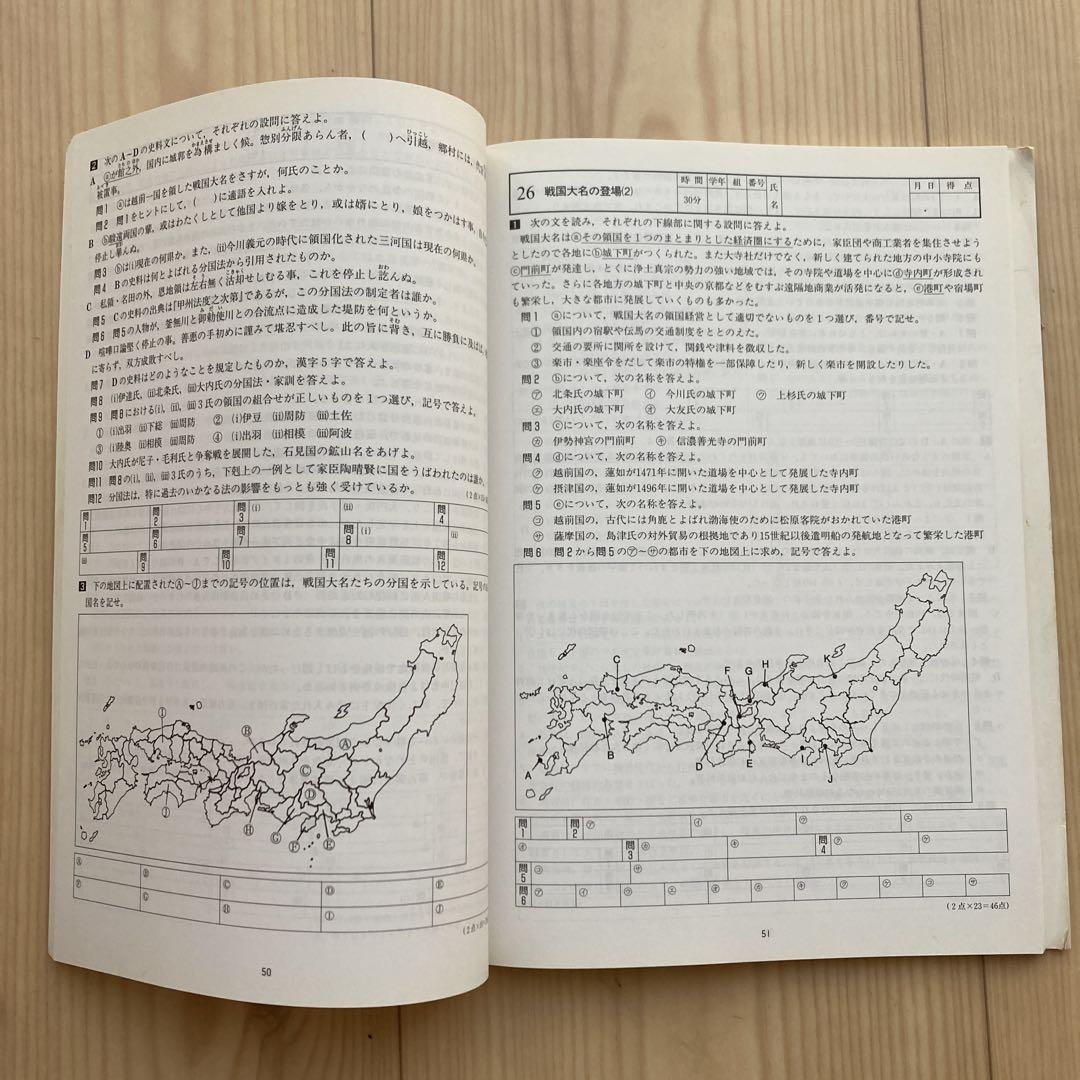 2 次のA−Dの史料文について，それぞれの設問に答えよ。
A ⓐが館之外，国内に城郭を為構ましく候。惣別分限あらん者，（　）へ引越，郷村には，
被置事。
問1 ⓐは越前一国を領した戦国大名をさすが，何氏のことか。
問2 問1をヒントにして，（　）に適語を入れよ。
B ⓑ駿遠両国の輩，或はわたくしとして他国より嫁をとり，或は婿にとり，娘をつかはす事，
停止し畢んぬ。
問3 ⓑは(i)現在の何県か。また，(ii)今川義元の時代に領国化された三河国は現在の何県か。
問4 Bの史料は何とよばれる分国法から引用されたものか。
C 私領・名田の外，恩地領は左右無く沽却せしむる事，これを停止し訖んぬ。
問5 Cの史料の出典は「甲州法度之次第」であるが，この分国法の制定者は誰か。
問6 問5の人物が，釜無川と御勅使川との合流点に造成した堤防を何というか。
D 喧嘩口論堅く停止の事。善悪の手初めに謹みて堪忍すべし。此の旨に背き，互に勝負に及ばば，
に寄らず，双方成敗すべし。
問7 Dの史料はどのようなことを規定したものか，漢字5字で答えよ。
問8 (i)伊達氏，(ii)北条氏，(iii)大内氏の分国法・家訓を答えよ。
問9 問8における(i)，(ii)，(iii)3氏の領国の組合せが正しいものを1つ選び，記号で答えよ。
① (i)出羽 (ii)下総 (iii)周防 ② (i)伊豆 (ii)周防 (iii)土佐
③ (i)陸奥 (ii)相模 (iii)周防 ④ (i)出羽 (ii)相模 (iii)阿波
問10 大内氏が尼子・毛利氏と争奪戦を展開した，石見国の鉱山名をあげよ。
問11 問8の(i)，(ii)，(iii)3氏のうち，下剋上の一例として家臣陶晴賢に国をうばわれたのは誰か。
問12 分国法は，特に過去のいかなる法の影響をもっとも強く受けているか。
問1 問2 問3 (i) (ii) 問4
問5 問6 問7 問8 (i) (ii)
(iii) 問9 問10 問11 問12
3 下の地図上に配置されたⒶ〜Ⓙまでの記号の位置は，戦国大名たちの分国を示している。記号の
国名を記せ。
Ⓐ Ⓑ Ⓒ Ⓓ Ⓔ Ⓕ Ⓖ Ⓗ Ⓘ Ⓙ
Ⓐ Ⓑ Ⓒ Ⓓ Ⓔ
Ⓕ Ⓖ Ⓗ Ⓘ Ⓙ
50
26 戦国大名の登場(2) 時間 30分 学年 組 番号 氏名 月日 得点
1 次の文を読み，それぞれの下線部に関する設問に答えよ。
戦国大名はⓐその領国を1つのまとまりとした経済圏にするために，家臣団や商工業者を集住させよう
としたので各地にⓑ城下町がつくられた。また大寺社だけでなく，新しく建てられた地方の中小寺院にも
ⓒ門前町が発達し，とくに浄土真宗の勢力の強い地域では，その寺院や道場を中心にⓓ寺内町が形成され
ていった。さらに各地方の城下町と中央の京都などをむすぶ遠隔地商業が活発になると，ⓔ港町や宿場町
も繁栄し，大きな都市に発展していくものも多かった。
問1 ⓐについて，戦国大名の領国経営として適切でないものを1つ選び，番号で記せ。
① 領国内の宿駅や伝馬の交通制度をととのえた。
② 交通の要所に関所を設けて，関銭や津料を徴収した。
③ 楽市・楽座令をだして楽市の特権を一部保障したり，新しく楽市を開設したりした。
問2 ⓑについて，次の名称を答えよ。
㋐ 北条氏の城下町 ㋑ 今川氏の城下町 ㋒ 上杉氏の城下町
㋓ 大内氏の城下町 ㋔ 大友氏の城下町
問3 ⓒについて，次の名称を答えよ。
㋕ 伊勢神宮の門前町 ㋖ 信濃善光寺の門前町
問4 ⓓについて，次の名称を答えよ。
㋗ 越前国の，蓮如が1471年に開いた道場を中心として発展した寺内町
㋘ 摂津国の，蓮如が1496年に開いた道場を中心として発展した寺内町
問5 ⓔについて，次の名称を答えよ。
㋙ 越前国の，古代には角鹿とよばれ渤海使のために松原客院がおかれていた港町
㋚ 薩摩国の，島津氏の対外貿易の根拠地であり15世紀以後遣明船の発航地となって繁栄した港町
問6 問2から問5の㋐〜㋚の都市を下の地図上に求め，記号で答えよ。
A B C D E F G H I J K
問1 問2 ㋐ ㋑ ㋒ ㋓
㋔ 問3 ㋕ ㋖ 問4 ㋗ ㋘
問5 ㋙ ㋚
問6 ㋐ ㋑ ㋒ ㋓ ㋔ ㋕ ㋖ ㋗ ㋘ ㋙ ㋚
(2点×23＝46点)
51